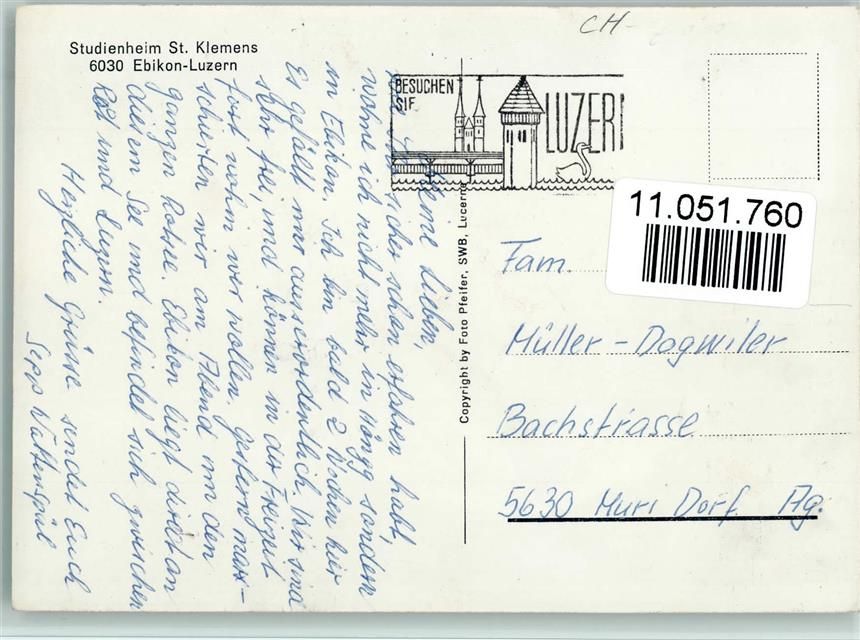 CH-
Studienheim St. Klemens
6030 Ebikon-Luzern
BESUCHEN
SIE
LUZERN
11.051.760
Copyright by Foto Pfeifer, SWB, Luzern
Meine Lieben,
Wie Ihr sicher schon erfahren habt,
wohne ich nicht mehr in Höngg sondern
in Ebikon. Ich bin bald 2 Wochen hier
Es gefällt mir ausserordentlich. Wir sind
sehr frei, und können in der Freizeit
fort wohin wir wollen. Gestern mar-
schierten wir am Abend um den
ganzen Rotsee. Ebikon liegt direkt an
diesem See und befindet sich zwischen
Root und Luzern.
Herzliche Grüsse sendet Euch
Sepp
Fam.
Müller-Dogwiler
Bachstrasse
5630 Muri Dorf Ag.